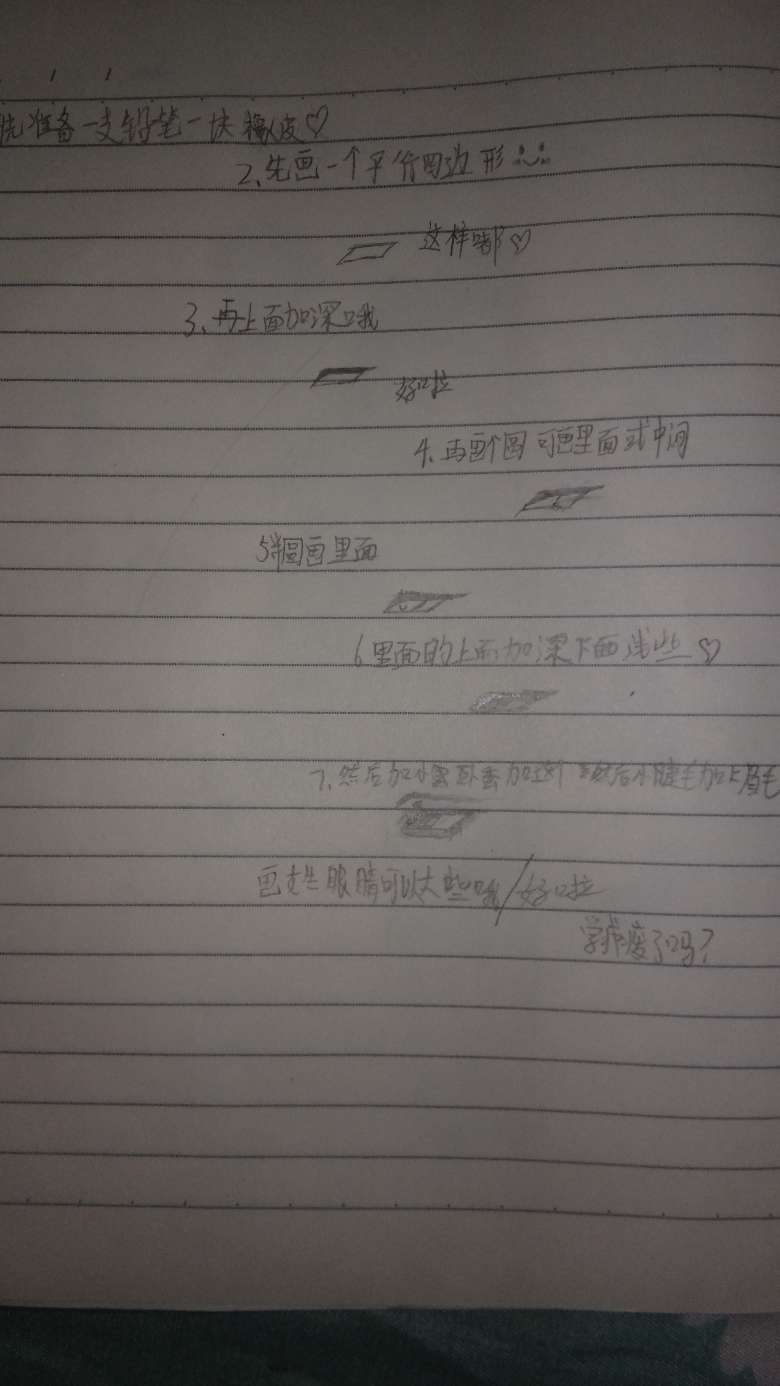 先准备一支铅笔一块橡皮♡
2、先画一个平行四边形
这样哪♡
3、再上面加深哦
好口拉
4、再画个圆可画里面或中间
5半圆画里面
6里面的上面加深下面浅些♡
7、然后加小 卧蚕加 然后小睫毛加上眉毛
画 眼睛可以大些哦/好口拉
学废了吗?